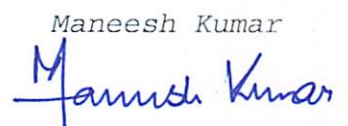 Maneesh Kumar
Maneesh Kumar